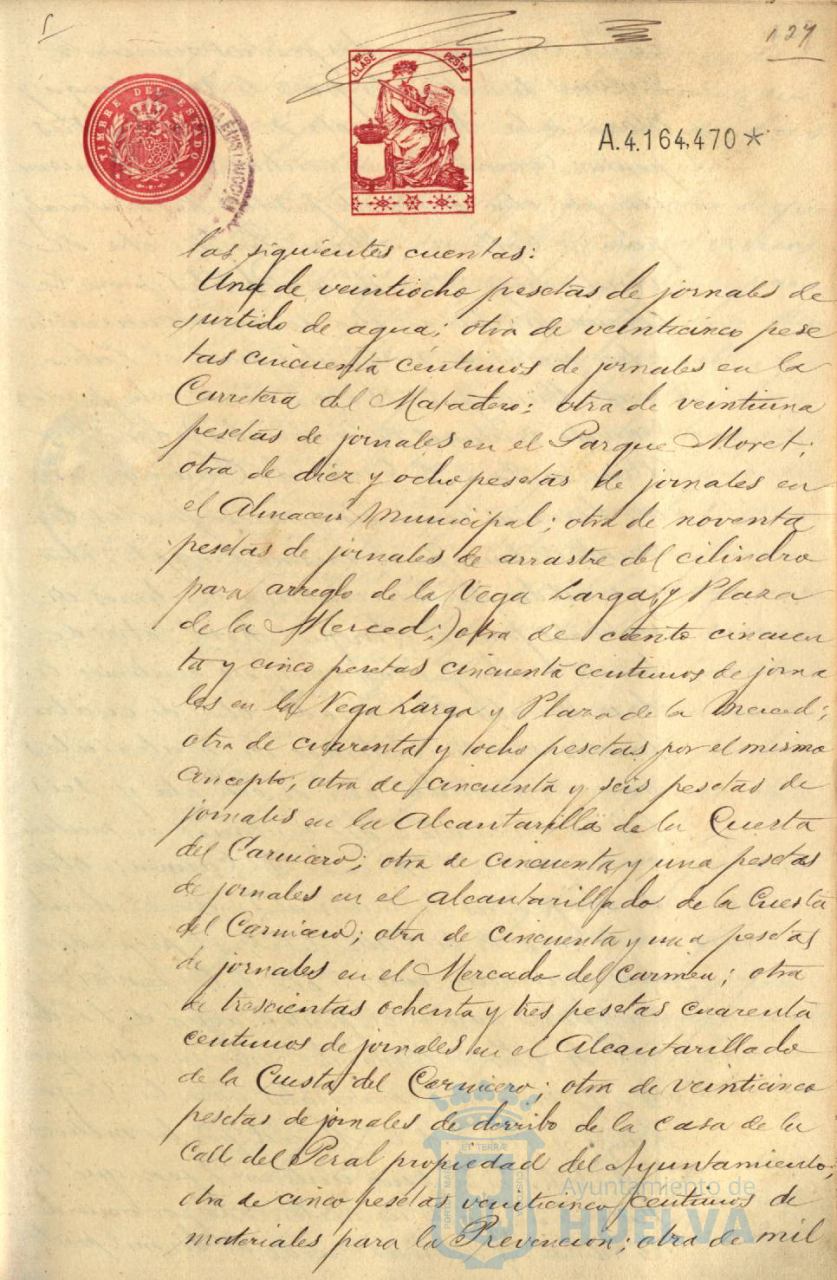 127
TIMBRE DEL ESTADO
CLASE
PESETAS
A.4.164.470*
las siguientes cuentas:
Una de veintiocho pesetas de jornales de
surtido de agua; otra de veinticinco pese
tas cincuenta centimos de jornales en la
Carretera del Matadero: otra de veintiuna
pesetas de jornales en el Parque Moret;
otra de diez y ocho pesetas de jornales en
el Almacen Municipal; otra de noventa
pesetas de jornales de arrastre del cilindro
para arreglo de la Vega Larga y Plaza
de la Merced; otra de ciento cincuen
ta y cinco pesetas cincuenta centimos de jorna
les en la Vega Larga y Plaza de la Merced;
otra de cuarenta y ocho pesetas por el mismo
concepto, otra de cincuenta y seis pesetas de
jornales en la Alcantarilla de la Cuesta
del Carnicero; otra de cincuenta y una pesetas
de jornales en el alcantarillado de la Cuesta
del Carnicero; otra de cincuenta y una pesetas
de jornales en el Mercado del Carmen; otra
de trescientas ochenta y tres pesetas cuarenta
centimos de jornales en el Alcantarillado
de la Cuesta del Carnicero; otra de veinticinco
pesetas de jornales de derribo de la casa de la
Calle del Peral propiedad del Ayuntamiento;
otra de cinco pesetas veinticinco centimos de
materiales para la Prevencion; otra de mil
Ayuntamiento de
HUELVA